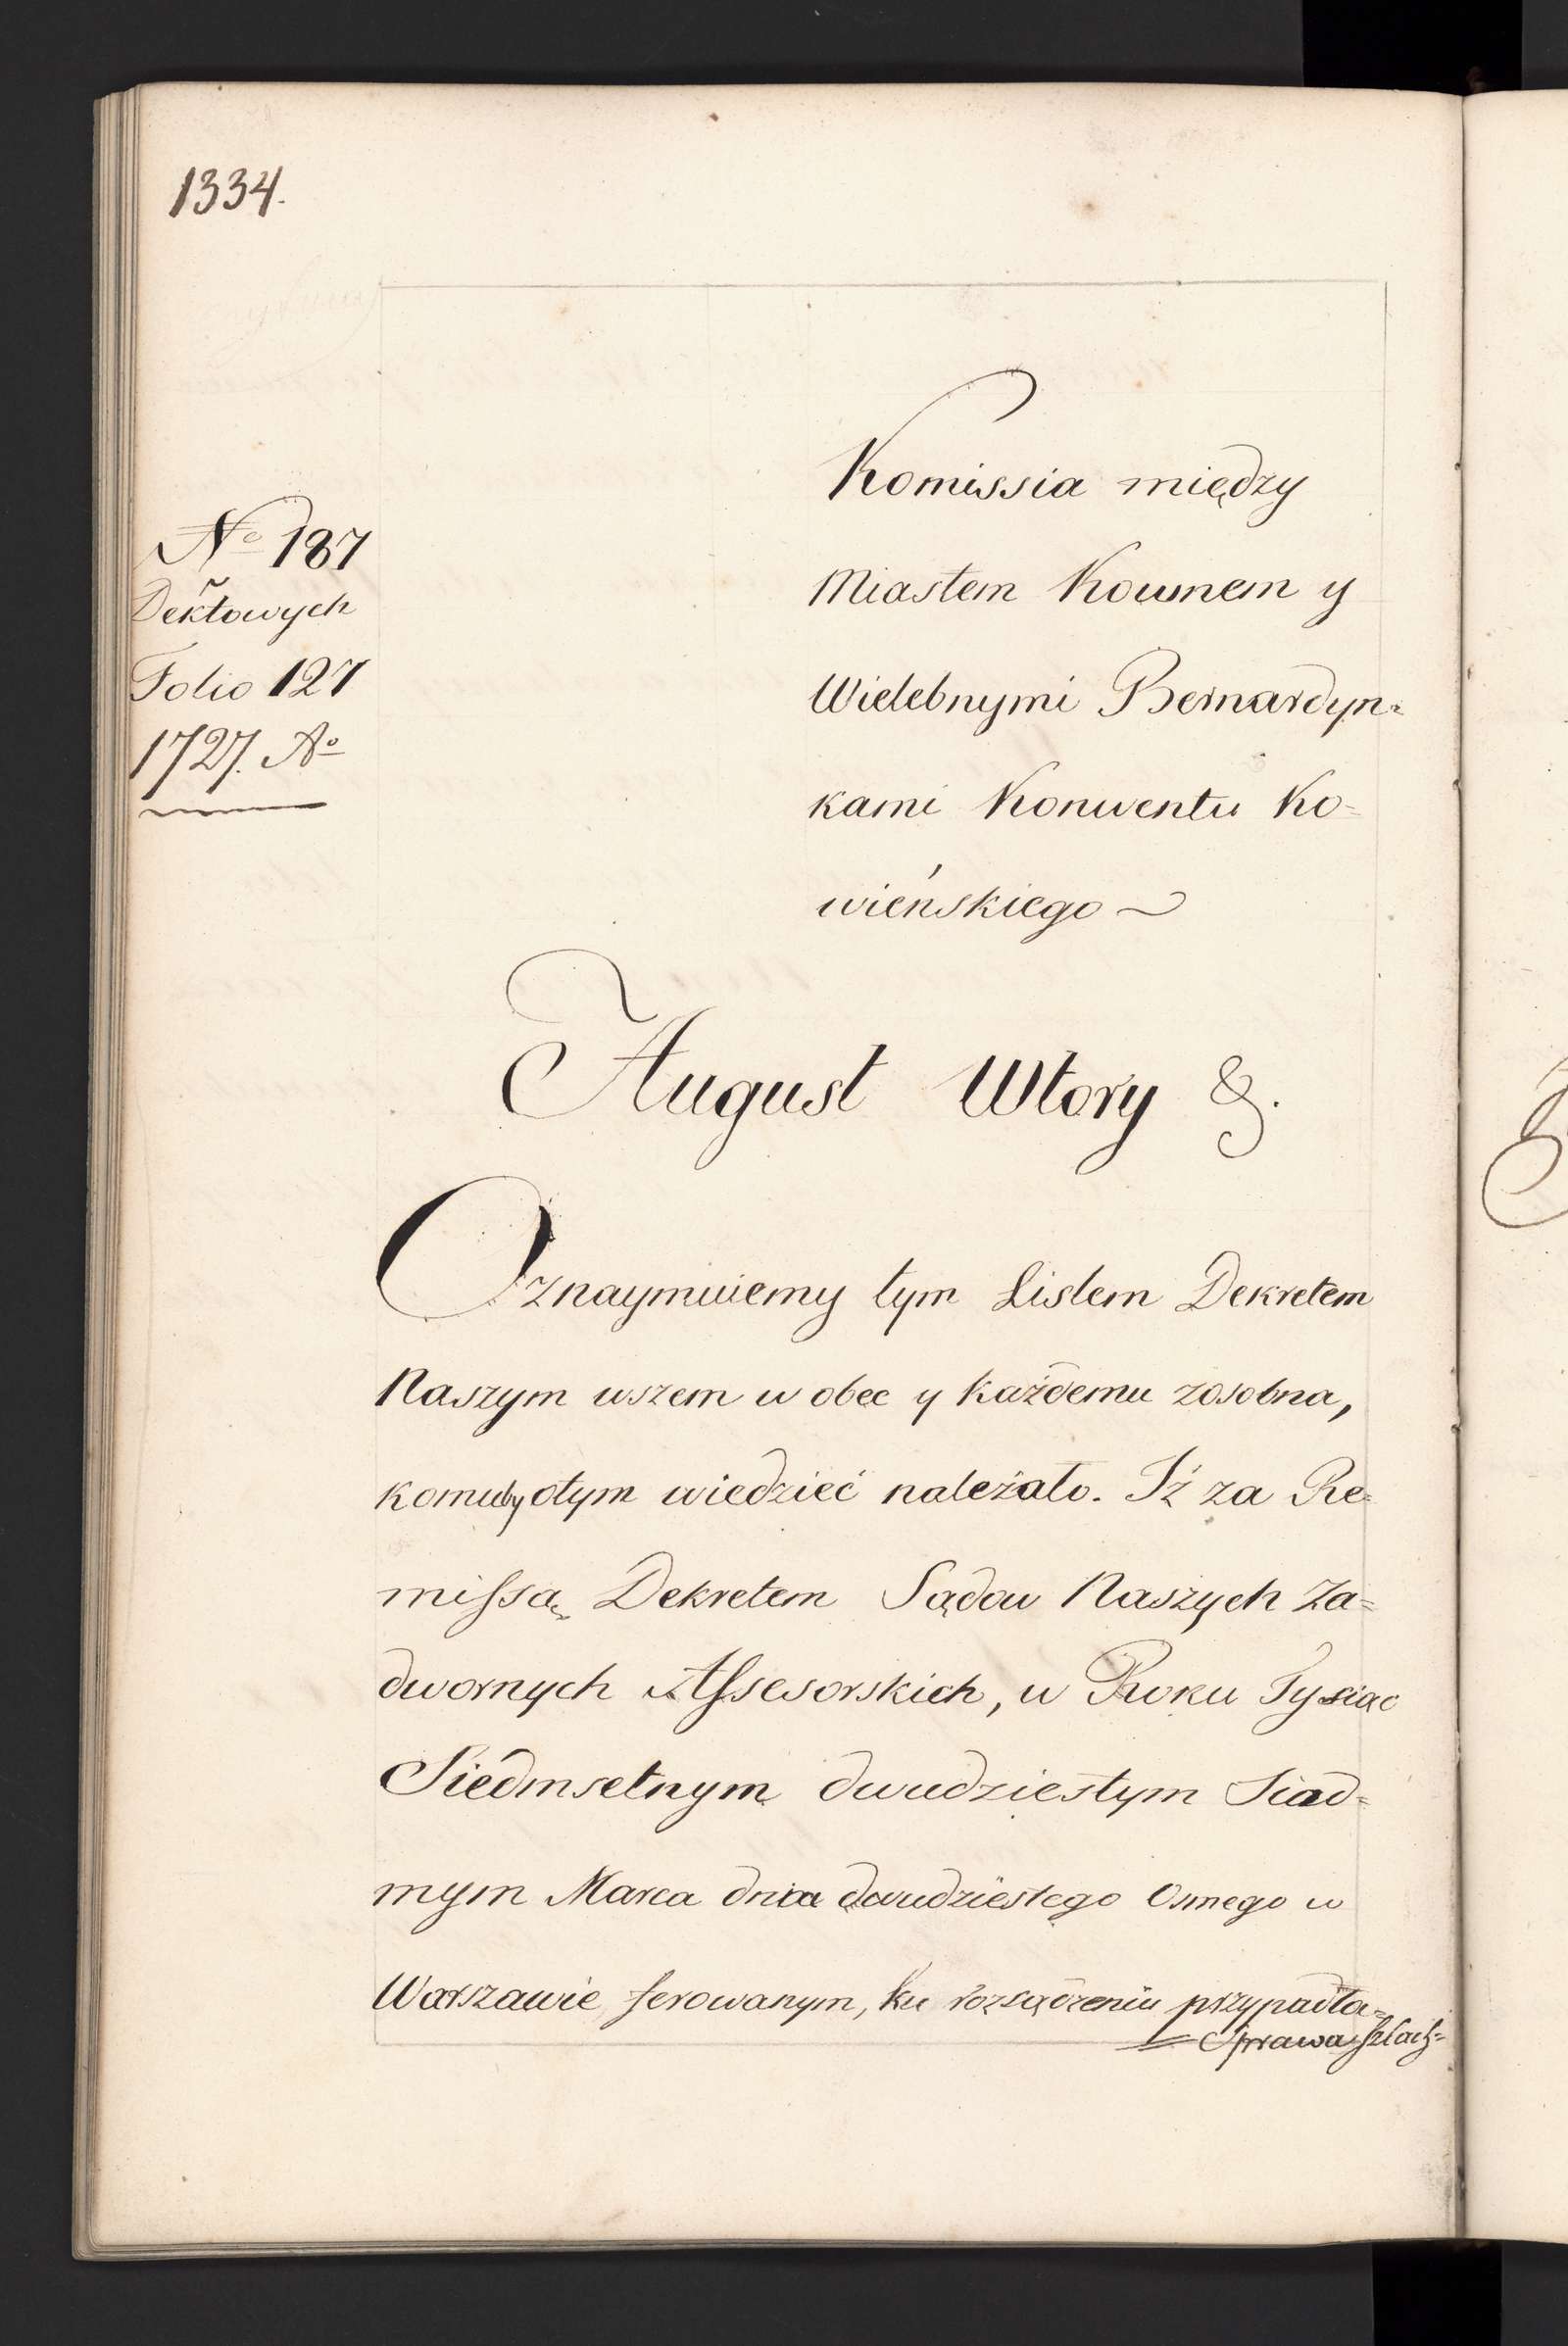 1334.
Komissia między
Miastem Kownem y
Wielebnymi Bernardyn=
kami Konwentu Ko=
wieńskiego
No 187
Dektowych
Folio 127
1727. Ao
August Wtory &.
Oznaymuiemy tym Listem Dekretem
Naszym wszem w obec y każdemu zosobna,
komuby otym wiedzieć należało. Iż za Re=
missą Dekretem Sądow Naszych Za=
dwornych Assesorskich, w Roku Tysiąc
Siedmsetnym dwudziestym Siad=
mym Marca dnia dwudziestego Osmego w
Warszawie ferowanym, ku rozsądzeniu przypadła=
= Sprawa Szlach=